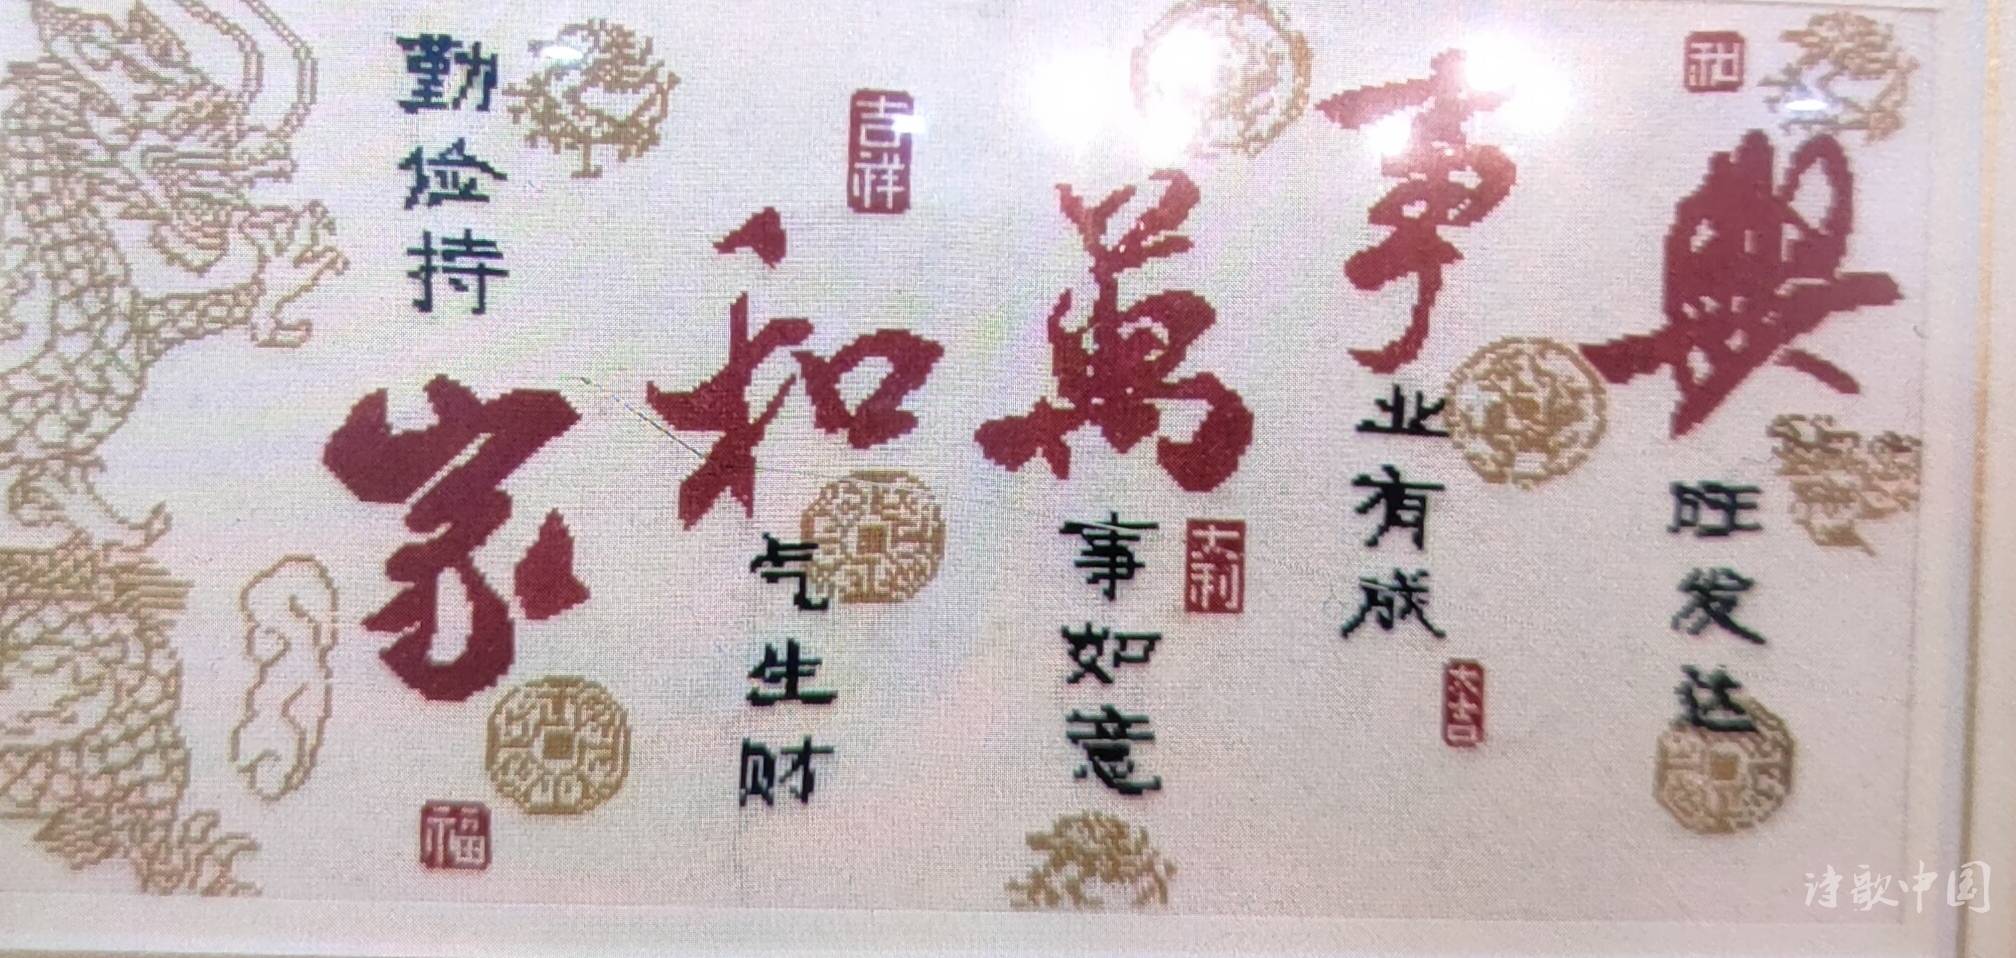 勤俭持家
福
吉祥
和气生财
萬事如意
大利
事业有成
大吉
和
興旺发达
诗歌中国